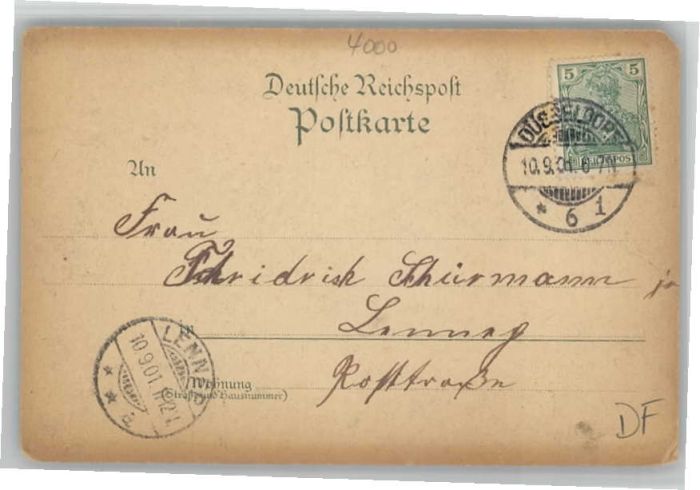 4000
Deutsche Reichspost
Postkarte
5 5
REICHSPOST
DÜSSELDORF
10.9.01. 6-7N
* 6 1
An
Frau
Fridrich Schürmann jr
Lennep
Poststraße
Wohnung
(Straße und Hausnummer)
LENNEP
10.9.01.
* * a
DF